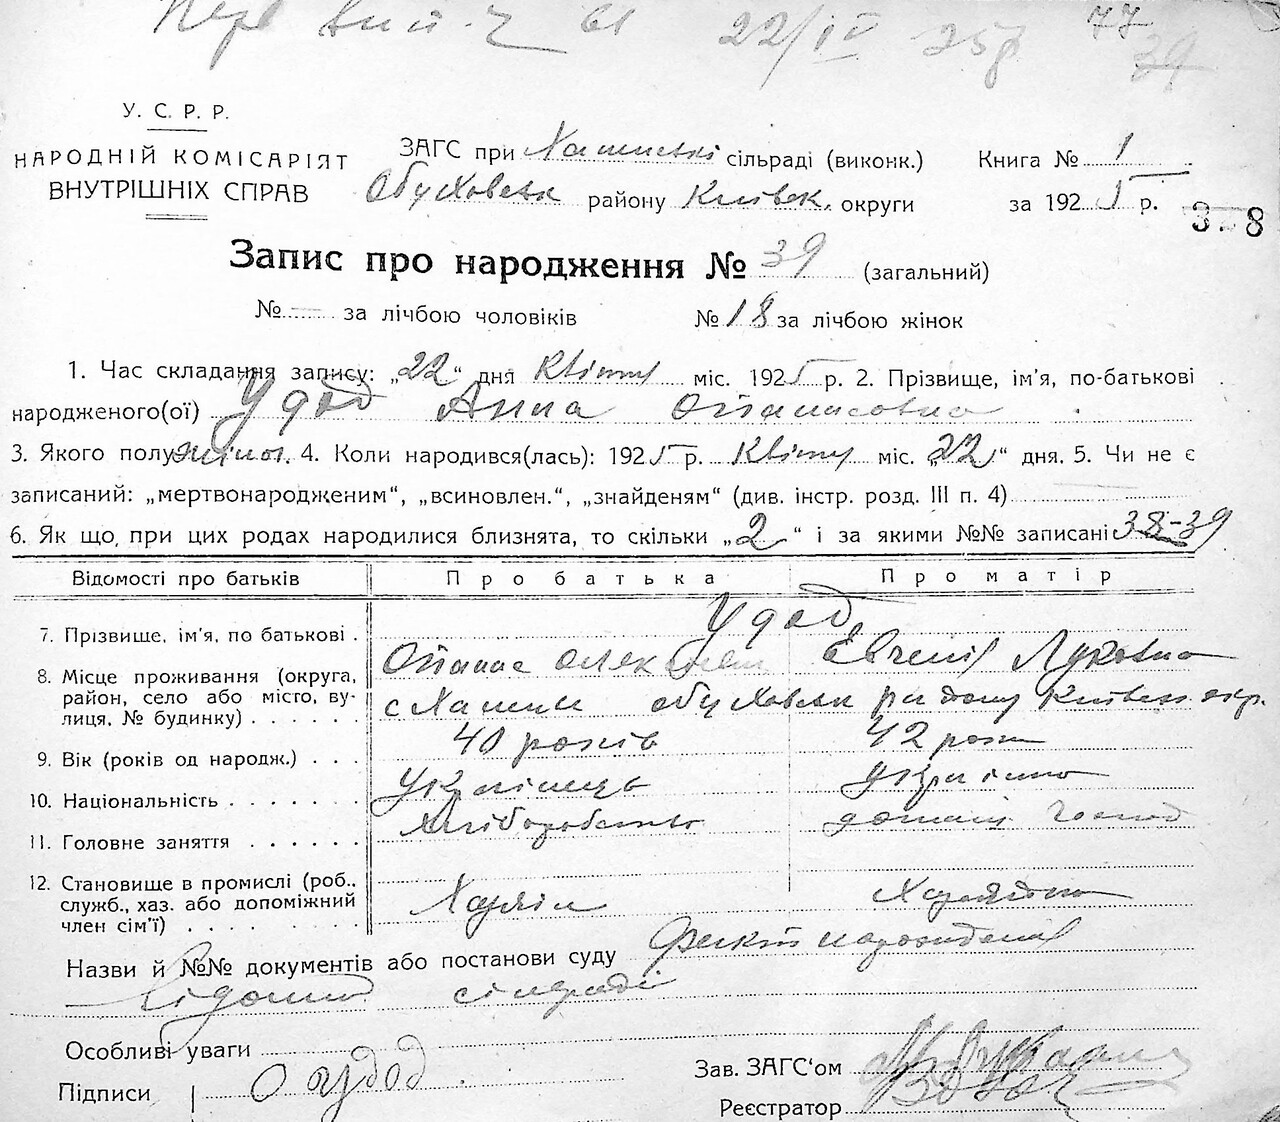 22/IV 25р 77
39
У. С. Р. Р.
НАРОДНІЙ КОМІСАРІЯТ
ВНУТРІШНІХ СПРАВ
ЗАГС при сільраді (виконк.)
Книга № 1
Обуховськ району Київськ. округи
за 1925 р.
Запис про народження № 39 (загальний)
№ — за лічбою чоловіків № 18 за лічбою жінок
1. Час складання запису: „22“ дня Квітня міс. 1925 р. 2. Прізвище, ім'я, по-батькові
народженого(ої) Удод Анна Опанасовна
3. Якого полу жіноч. 4. Коли народився(лась): 1925 р. Квітня міс. „22“ дня. 5. Чи не є
записаний: „мертвонародженим“, „всиновлен.“, „знайденям“ (див. інстр. розд. III п. 4)
6. Як що, при цих родах народилися близнята, то скільки „2“ і за якими №№ записані 38-39
Відомості про батьків Про батька Про матір
7. Прізвище, ім'я, по батькові . Удод
Опанас Олександ Евгенія Луковна
8. Місце проживання (округа,
район, село або місто, ву-
лиця, № будинку) . . . . . . с обуховськ району Київськ окр.
9. Вік (років од народж.) . . . 40 років 42 роки
10. Національність . . . . . . . Українець Українка
11. Головне заняття . . . . . . Хліборобство домаш господ
12. Становище в промислі (роб.,
служб., хаз. або допоміжний
член сім'ї) . . . . . . . . Хазяїн Хазяйка
Назви й №№ документів або постанови суду Факт народження
відомий сільраді
Особливі уваги
Підписи О Удод
Зав. ЗАГС'ом
Реєстратор